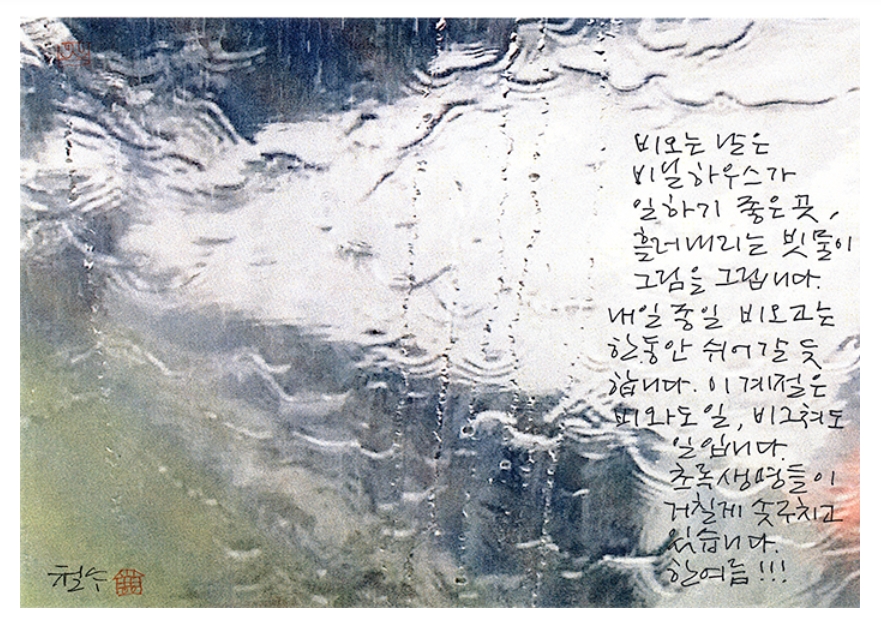 비오는 날은
비닐하우스가
일하기 좋은 곳,
흘러내리는 빗물이
그림을 그립니다.
내일 종일 비오고는
한동안 쉬어갈 듯
합니다. 이 계절은
비와도 일, 비그쳐도
일입니다.
초록생명들이
거칠게 솟구치고
있습니다.
한여름!!!
철수